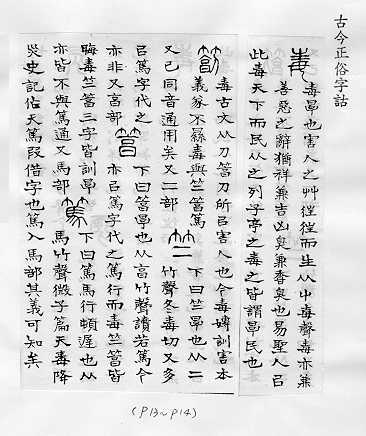 古今正俗字詁
毒
毒㫗也害人之艸徃徃而生从屮毒聲毒亦兼
善惡之辭猶祥兼吉凶臭兼香臭也易聖人㠯
此毒天下而民从之列子亭之毒之皆謂㫗民也
毒古文从刀䈞刀所㠯害人也今毒專訓害本
義不㬎毒與竺䈞篤
又已同音通用矣又二部
竺
下曰竺㫗也从二
竹聲冬毒切又多
㠯篤字代之
亦非又亯部
䈞
下曰䈞㫗也从亯竹聲讀若篤今
亦㠯篤字代之篤行而毒竺䈞皆
晦毒竺䈞三字皆訓㫗
亦皆不與篤通又馬部
篤
下曰篤馬行頓遲也从
馬竹聲微子篇天毒降
災史記作天篤叚借字也篤入馬部其義可知矣
(P13~P14)